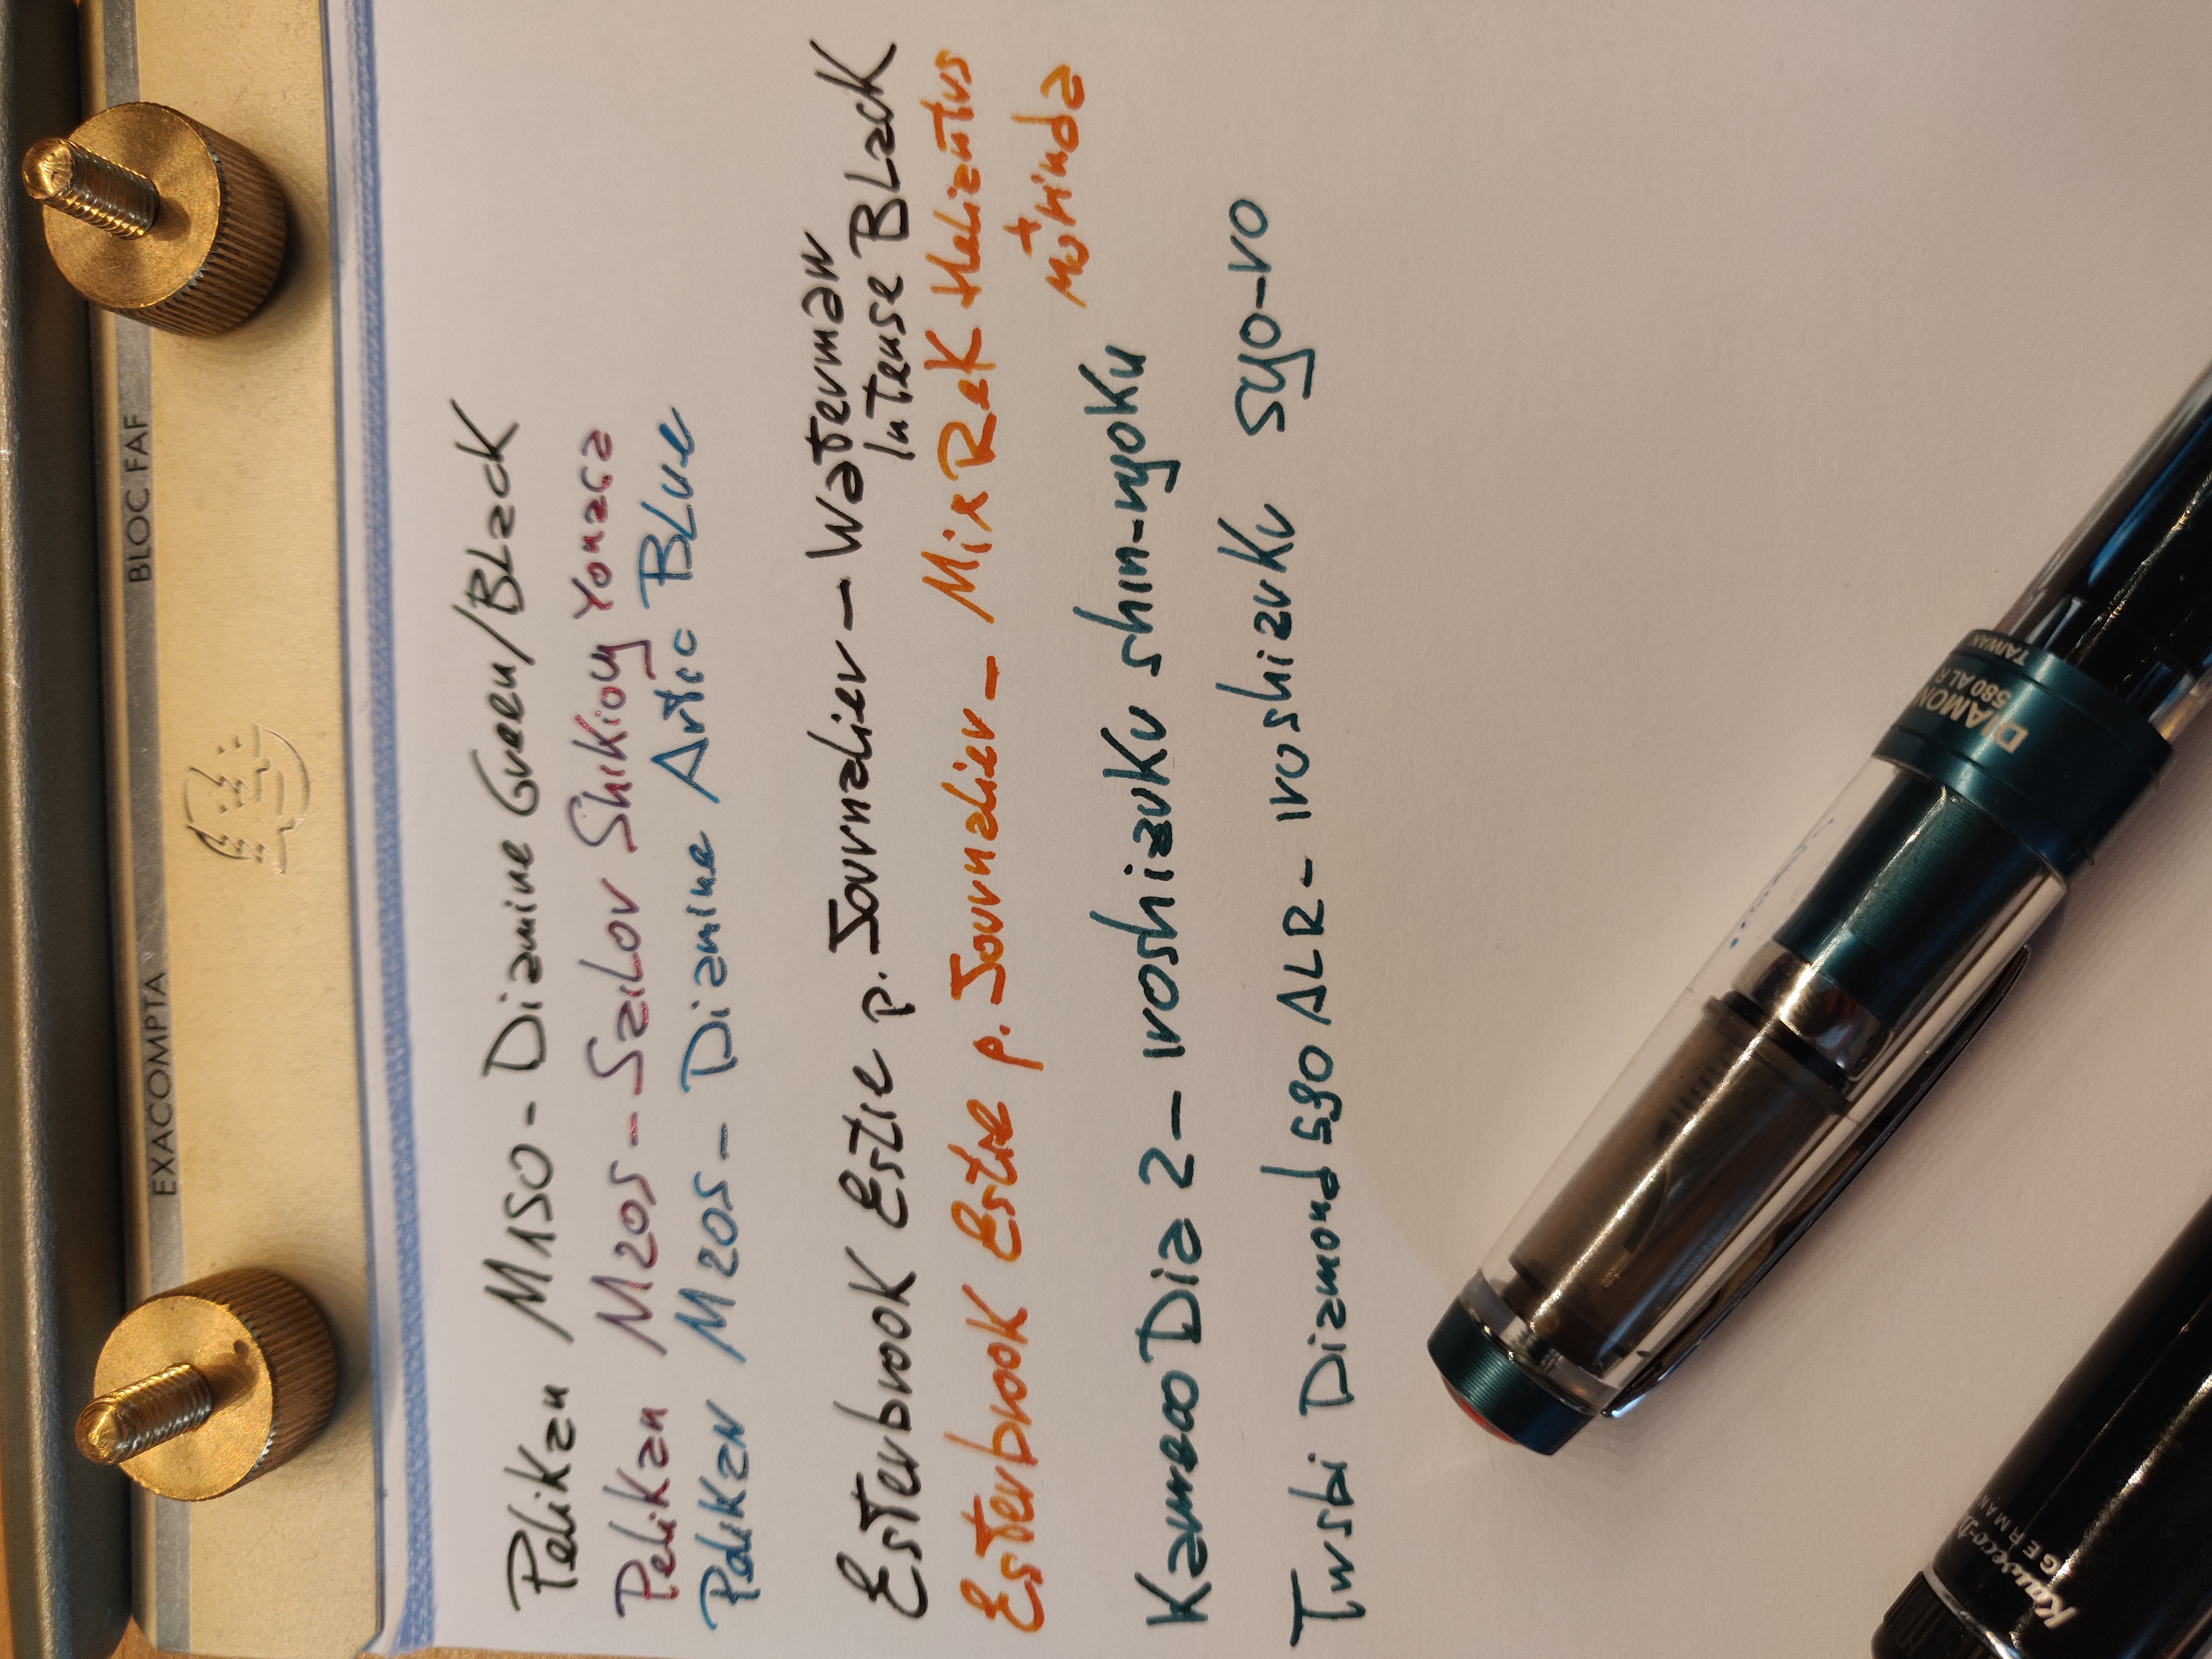 EXACOMPTA BLOC FAF
Pelikan M150 - Diamine Green/Black
Pelikan M205 - Sailor Shikiori Yonaga
Pelikan M205 - Diamine Artic Blue
Esterbrook Estie p. Journalier - Waterman
Intense Black
Esterbrook Estie p. Journalier - Mix R&K Helianthus
+
Morinda
Kaweco Dia 2 - iroshizuku shin-ryoku
Twsbi Diamond 580 ALR - iroshizuku syo-ro
DIAMON
580 AL R
TAIWAN
Kaweco
GERMAN